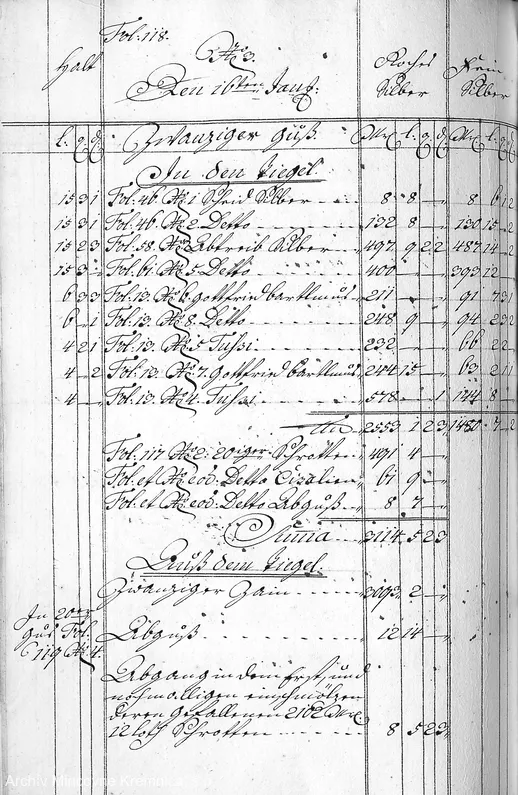 Fol: 118.
Halt No 3. Roches Fein
Den 16ten Janf: Silber Silber
l. q. d. Zwanziger Guß Mrc l. q. d. Mrc l. q. d.
In den Tiegel.
15 3 1 Fol. 46 No 1 Scheid Silber 8 8 - - 8 6 1 2
15 3 1 Fol. 46 No 2 Detto 132 8 - - 130 15 - 2
15 2 3 Fol. 58 No Abtreib Silber 497 9 2 2 487 14 - 2
15 3 - Fol. 61 No 5 Detto 400 - - - 393 12 - -
6 3 3 Fol: 13. No 6. Gottfried bartlmus 211 - - - 91 7 3 1
6 - 1 Fol: 13. No 8. Detto 248 9 - - 94 2 3 2
4 2 1 Fol. 13. No 5 232 - - - 66 2 2 -
4 - 2 Fol: 13. No 7. Gottfried bartlmus 244 15 - - 63 2 1 1
4 - - Fol: 13 No 4. 578 - - 1 144 8 - -
2553 1 2 3 1480 7 - 2
Fol. 117 No 2: 20iger Schrotten 491 4 - -
Fol. et No eod: Detto Cizalien 61 9 - -
Fol. et No eod: Detto Abguß 8 7 - -
Summa 3114 5 2 3
Auß dem Tiegel.
Zwanziger Zain 3093 2 - -
In 20er
Gus Fol. Abguß 12 14 - -
119 No 4.
Abgang in dem Erst, und
nochmalligen einschmölzen
deren Gefallenen 2102 Mrc
12 loth Schrotten 8 5 2 3
Archiv Mincovne Kremnica